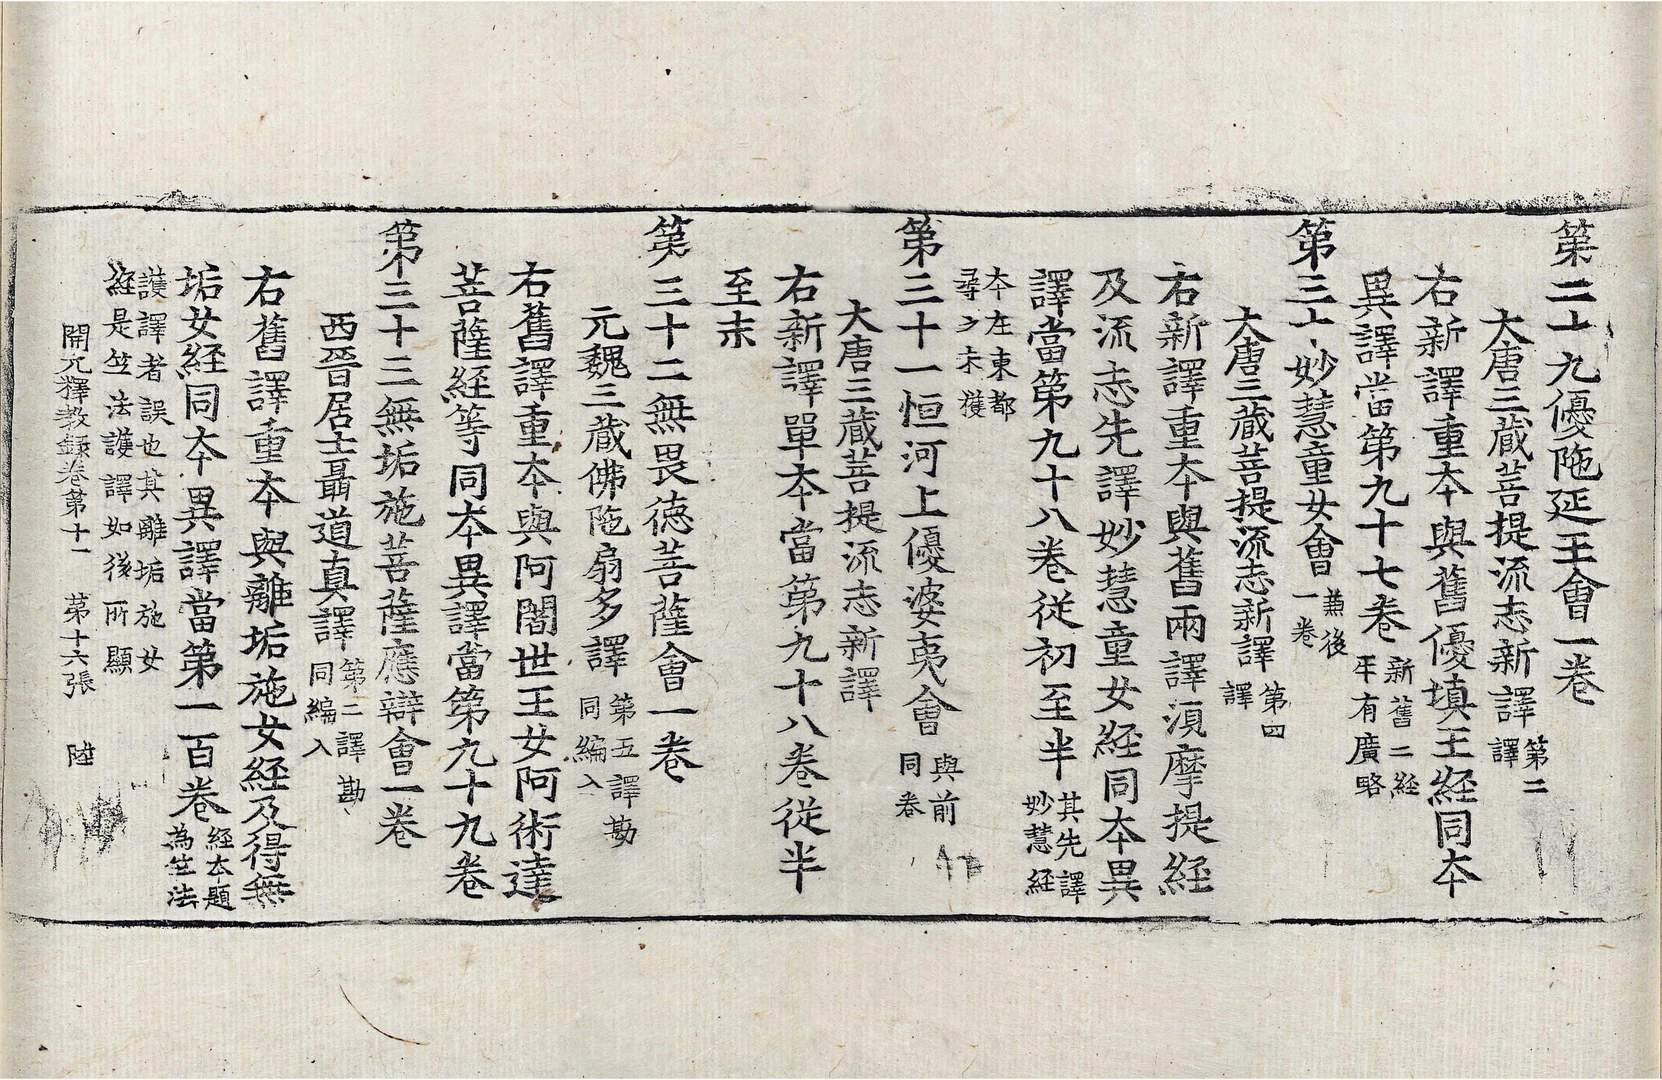 第二十九優陁延王會一卷
大唐三藏菩提流志新譯第二譯
右新譯重本與舊優填王經同本
異譯當第九十七卷新舊二經平有廣略
第三十妙慧童女會兼後一卷
大唐三藏菩提流志新譯第四譯
右新譯重本與舊兩譯湏摩提經
及流志先譯妙慧童女經同本異
譯當第九十八卷従初至半其先譯妙慧經
本在東都尋之未獲
第三十一恒河上優婆夷會與前同卷
大唐三藏菩提流志新譯
右新譯單本當第九十八卷従半
至末
第三十二無畏德菩薩會一卷
元魏三藏佛陁扇多譯第五譯勘同編入
右舊譯重本與阿闍世王女阿術達
菩薩經等同本異譯當第九十九卷
第三十三無垢施菩薩應辯會一卷
西晉居士聶道真譯第二譯勘同編入
右舊譯重本與離垢施女經及得無
垢女經同本異譯當第一百卷經本題為竺法
護譯者誤也其離垢施女
經是竺法護譯如後所顯
開元釋教録卷第十一　第十六張　陞